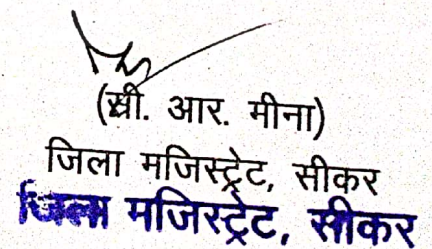 (सी. आर. मीना)
जिला मजिस्ट्रेट, सीकर
जिला मजिस्ट्रेट, सीकर